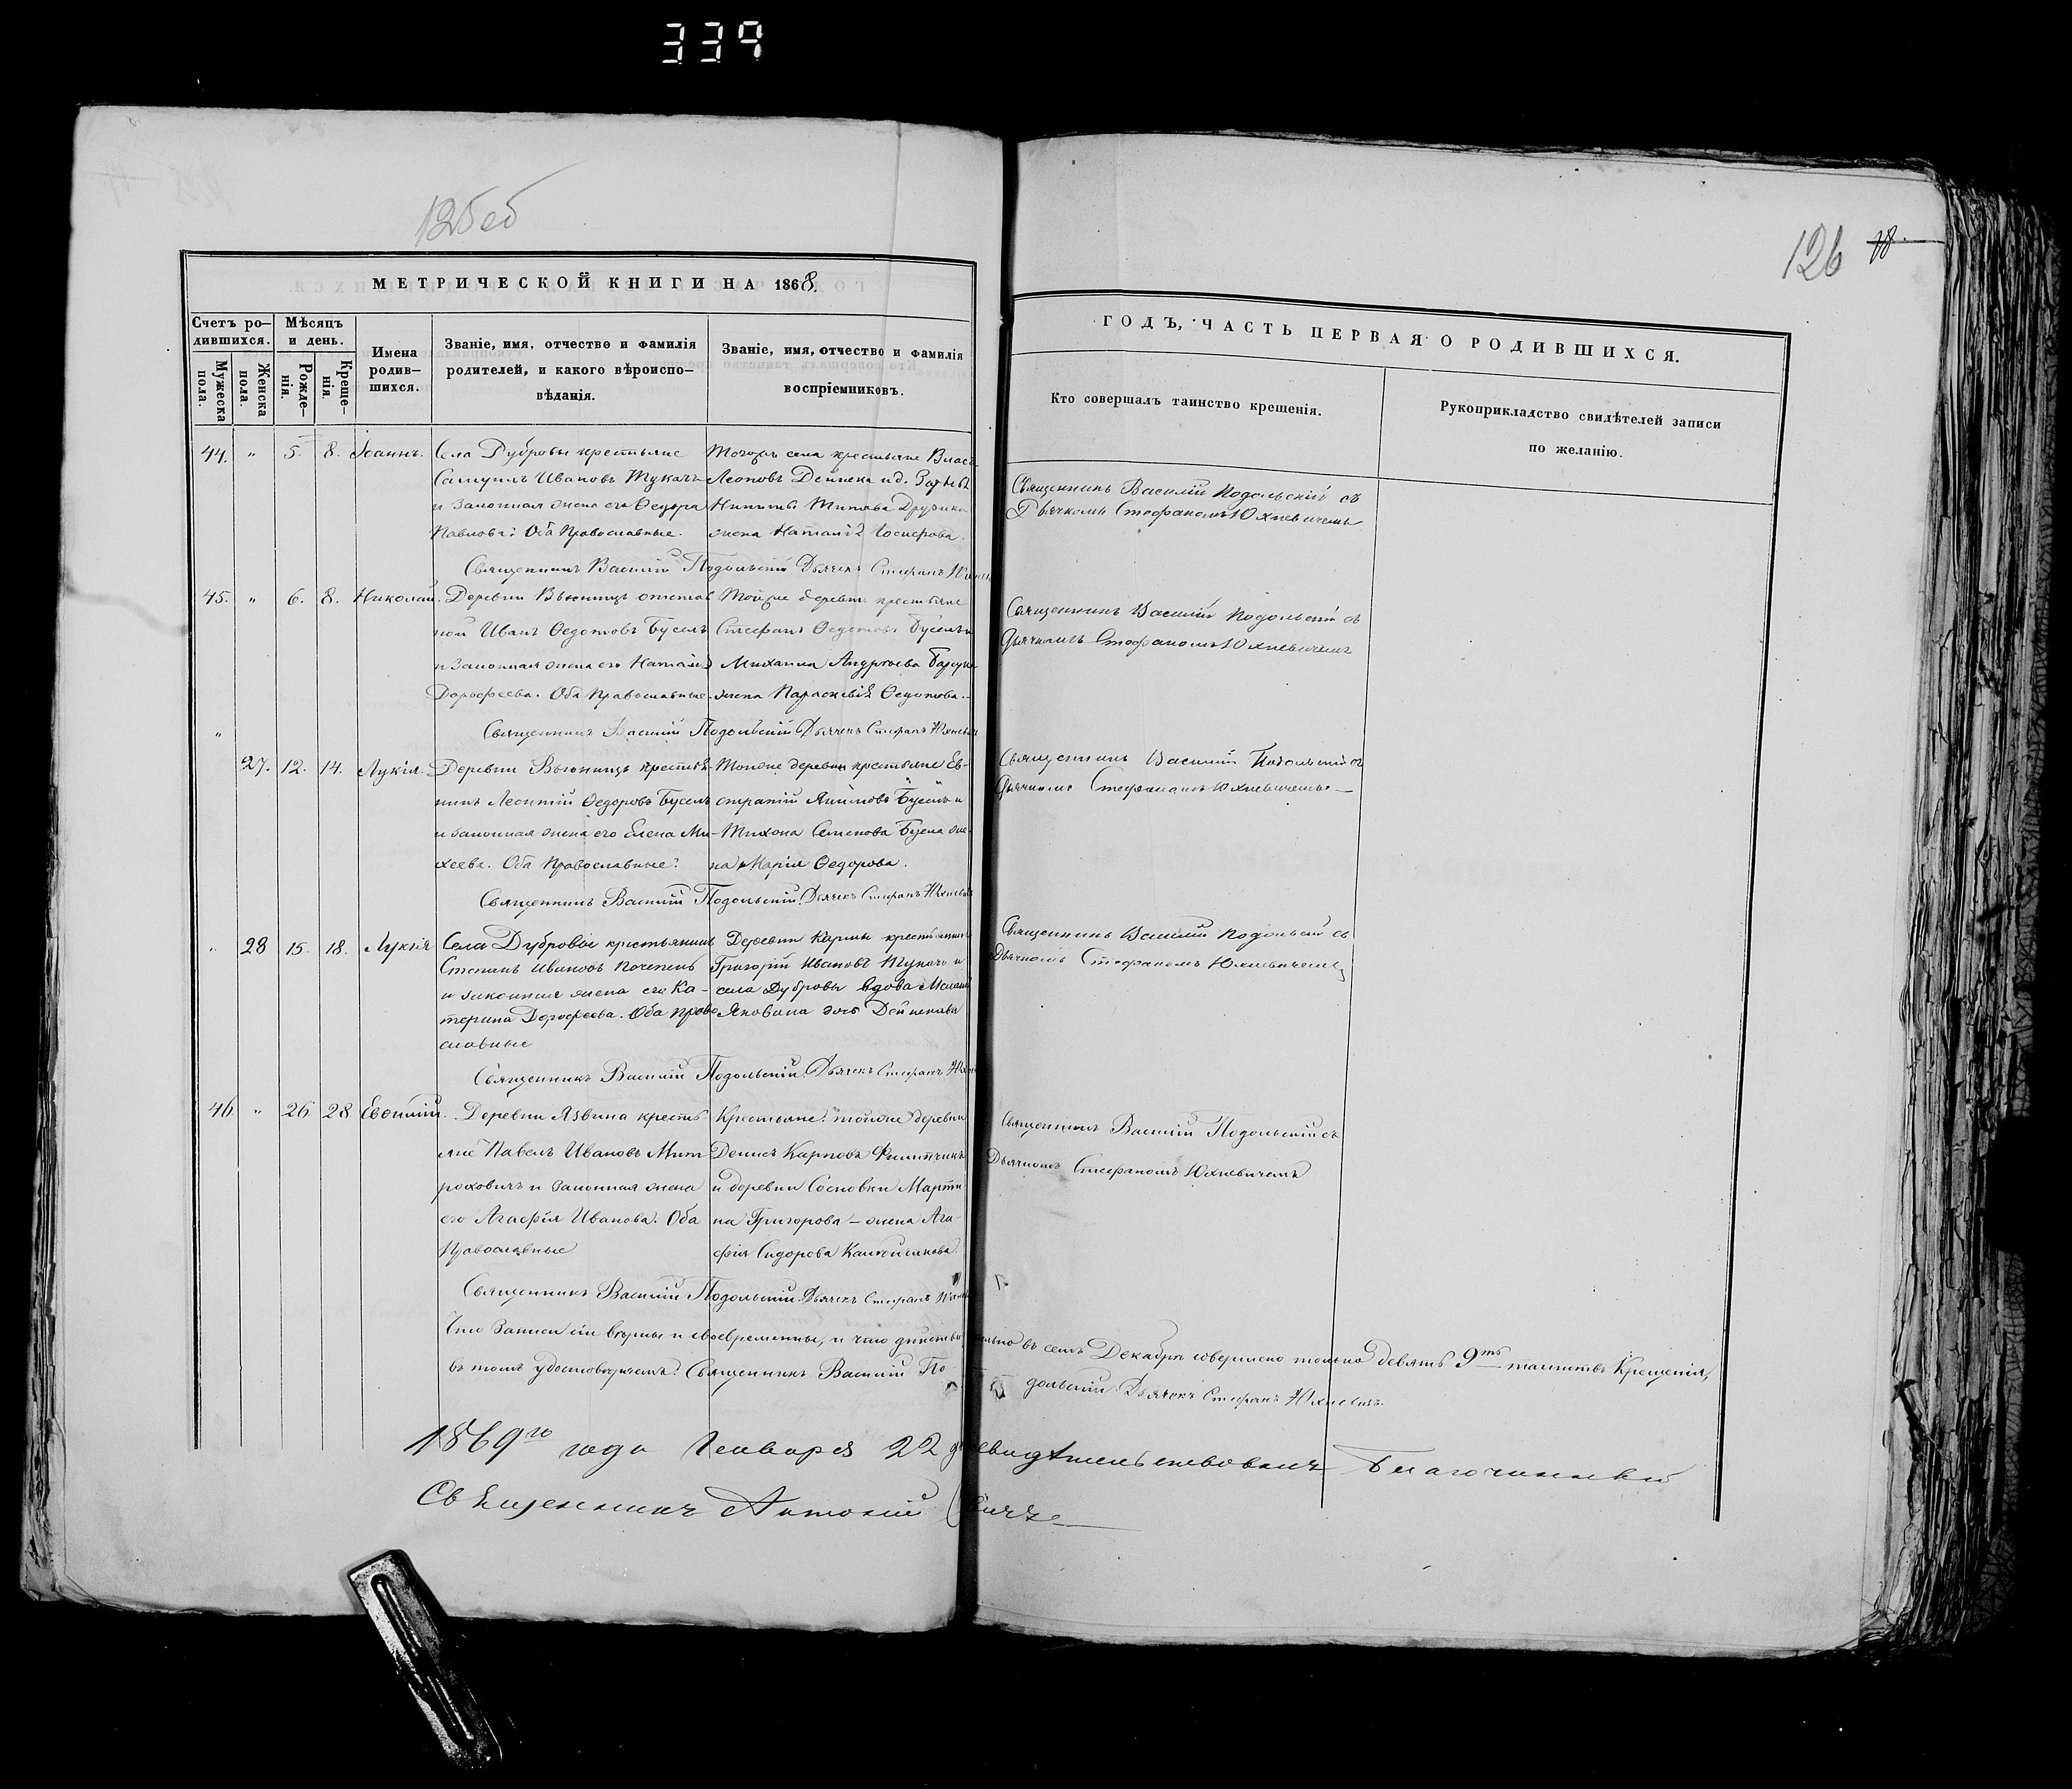 339
125об
126 18
МЕТРИЧЕСКОЙ КНИГИ НА 1868.
Счетъ ро-
дившихся.
Мѣсяцъ
и день.
Мужеска
пола.
Женска
пола.
Рожде-
нія.
Креще-
нія.
Имена
родив-
шихся.
Званіе, имя, отчество и фамилія
родителей, и какого вѣроиспо-
вѣданія.
Званіе, имя, отчество и фамилія
воспріемниковъ.
ГОДЪ, ЧАСТЬ ПЕРВАЯ О РОДИВШИХСЯ.
Кто совершалъ таинство крещенія.
Рукоприкладство свидѣтелей записи
по желанію.
44. " 5. 8. Іоаннъ.
Села Дубровы крестьяне
Самуилъ Ивановъ Тукачъ
и законная жена его Ѳеодора
Павлова. Оба Православные.
Тогожъ села крестьяне Власъ
Леоновъ Дейнека и д.
Никиты Титова
жена Наталія Іосифова.
Священникъ Василій Подольскій съ
Дьячкомъ Стефаномъ Юхневичемъ
Священникъ Василій Подольскій. Дьячекъ Стефанъ
45. " 6. 8. Николай.
Деревни Вьюнищъ отстав
ной Иванъ Ѳедотовъ Буселъ
и законная жена его Наталія
Дорофеева. Оба Православные.
Тойже деревни крестьяне
Стефанъ Ѳедотовъ Буселъ и
Михаила Андреева
жена Параскевія Ѳедотова.
Священникъ Василій Подольскій съ
Дьячкомъ Стефаномъ Юхневичемъ
Священникъ Василій Подольскій Дьячекъ Стефанъ
" 27. 12. 14. Лукія.
Деревни Вьюнищъ крестья-
нинъ Леонтій Ѳедоровъ Буселъ
и законная жена его Елена Ми-
хеева. Оба Православные.
Тойже деревни крестьяне Ев-
стратій Якимовъ Буселъ и
Тихона Семенова Бусла же-
на Марія Ѳедорова.
Священникъ Василій Подольскій съ
Дьячкомъ Стефаномъ Юхневичемъ
Священникъ Василій Подольскій. Дьячекъ Стефанъ
" 28 15. 18. Лукія
Села Дубровы крестьянинъ
Степанъ Ивановъ
и законная жена его Ка-
терина Дорофеева. Оба право
славные
Деревни Кармы крестьянинъ
Григорій Ивановъ Тукачъ и
села Дубровы вдова
дочь
Священникъ Василій Подольскій съ
Дьячкомъ Стефаномъ Юхневичемъ
Священникъ Василій Подольскій. Дьячекъ Стефанъ
46 " 26. 28. Евѳимій.
Деревни Язвина кресть-
яне Павелъ Ивановъ Мит
роховичъ и законная жена
его Агафія Иванова. Оба
Православные
Крестьяне: тойже деревни
Денисъ Карповъ
и деревни Сосновки Марти-
на Григорова – жена Ага-
фія Сидорова
Священникъ Василій Подольскій съ
Дьячкомъ Стефаномъ Юхневичемъ
Священникъ Василій Подольскій. Дьячекъ Стефанъ
Что Записи сіи вѣрны и своевременны, и что дѣйствительно въ семъ Декабрѣ совершено только девять 9ть таинствъ Крещенія,
въ томъ удостовѣряемъ: Священникъ Василій Подольскій. Дьячекъ Стефанъ Юхневичъ.
1869го года Генваря 22 д. свидѣтельствовалъ Благочинный
Священникъ Антоній